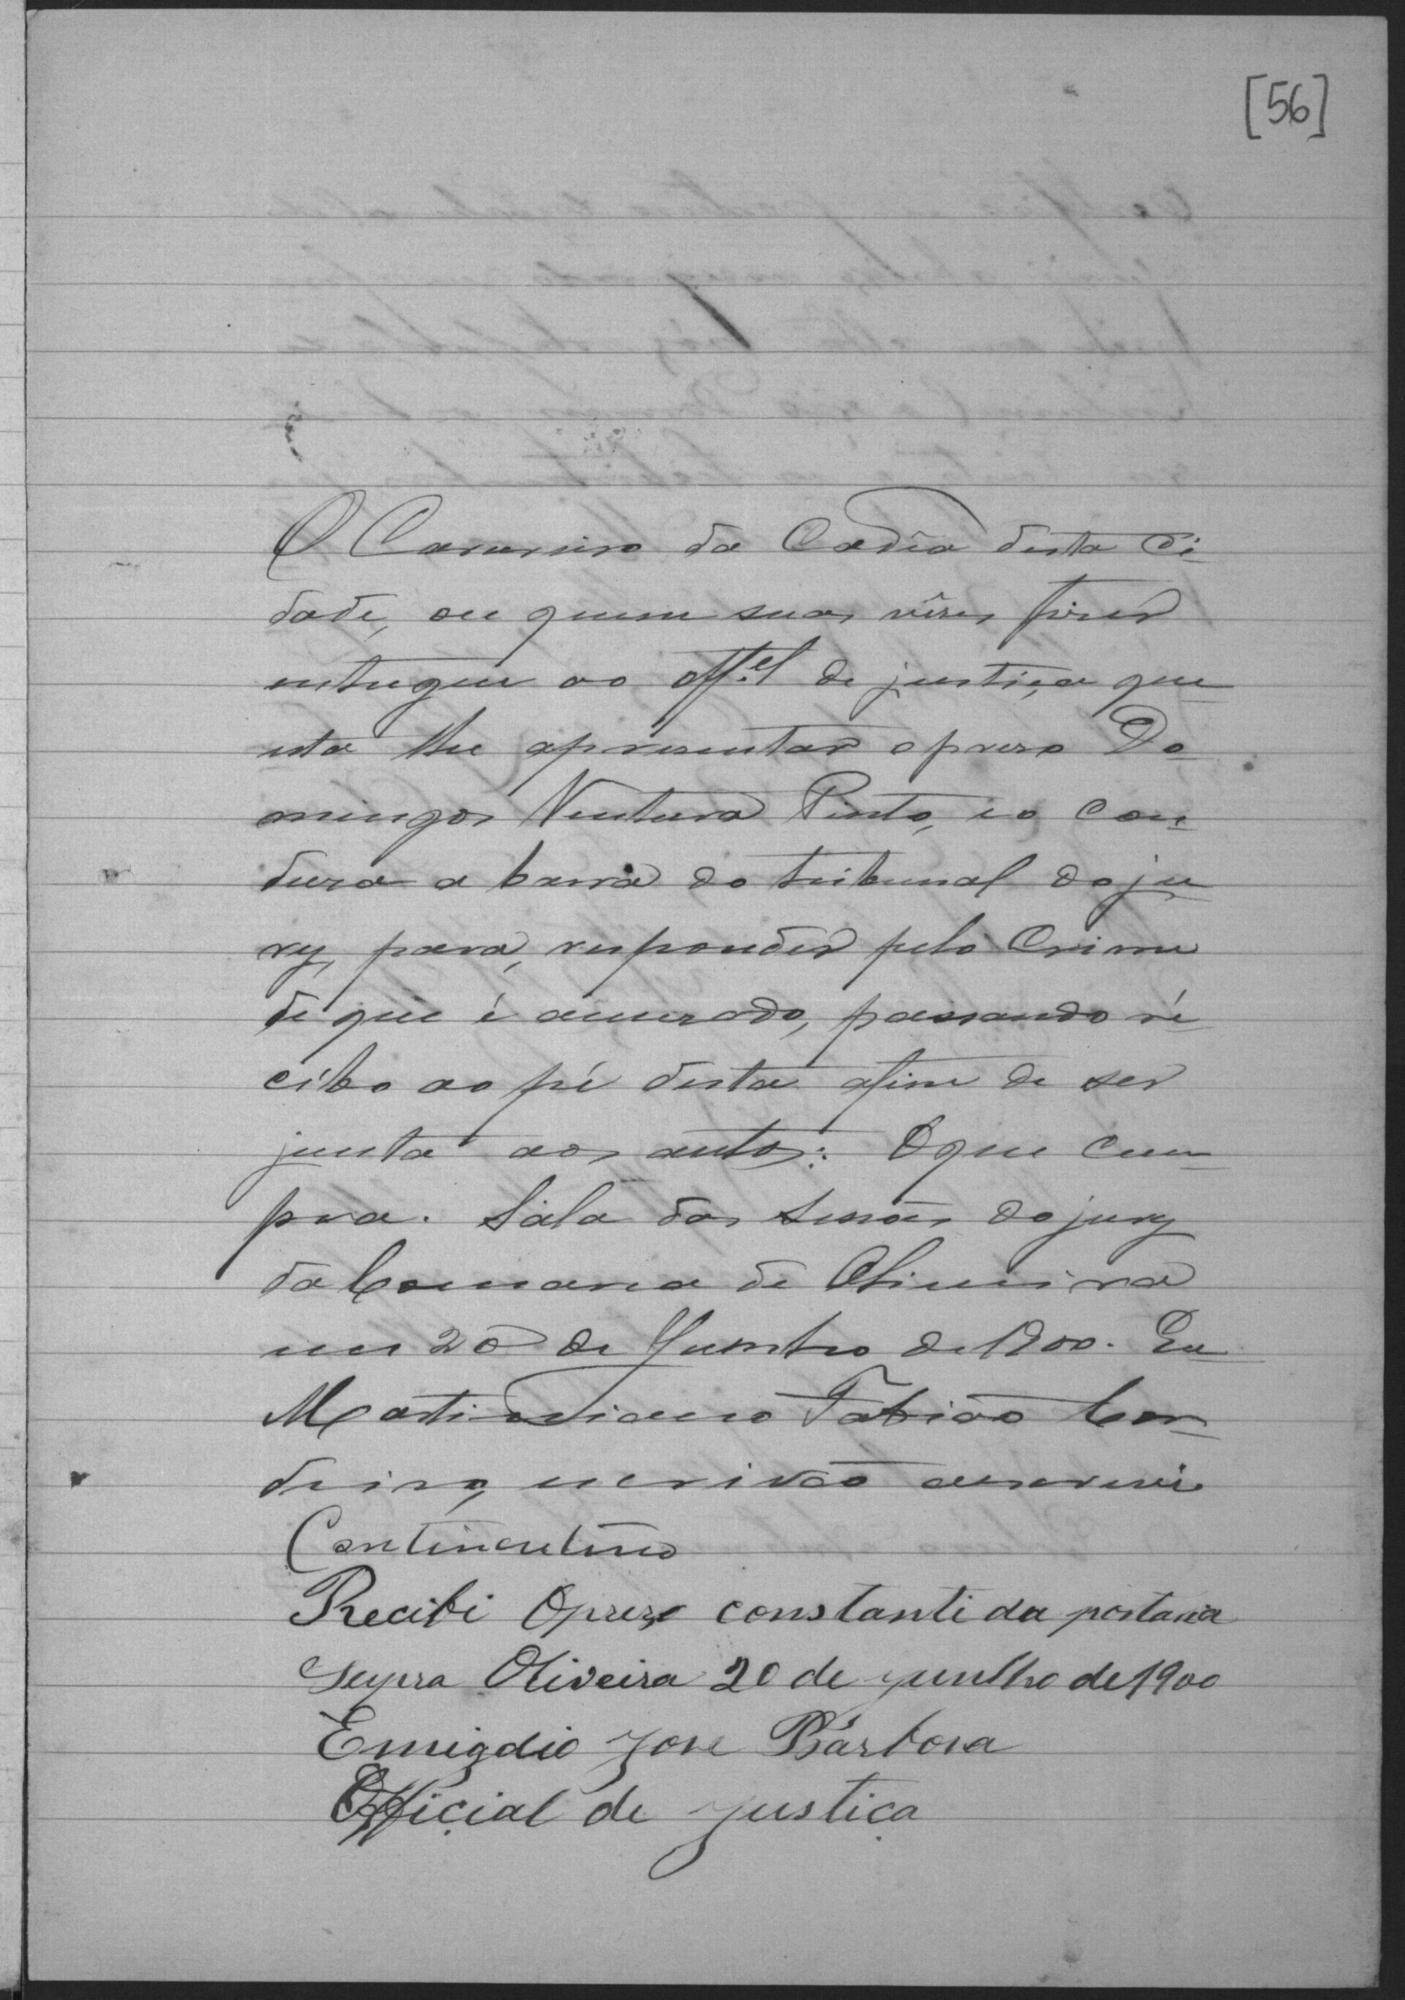 [56]
O Carcereiro da Cadêa desta Ci-
dade, ou quem suas vêses fizer
entregue ao Off.el de justiça que
esta lhe apresentar o preso Do-
mingos Ventura Pinto, e o con-
duza a barra do tribunal do ju-
ry, para, responder pelo Crime
de que é accusado, passando re-
cibo ao pé desta afim de ser
junta aos autos: O que cum-
pra. Sala das Sessões do jury
da Comarca de Oliveira
em 20 de Junho de 1900. Eu
Martiniano Fabião Cor-
deiro, escrivão escrevi
Continentino
Recibi O prezo constanti da portaria
Supra Oliveira 20 de junlho de 1900
Emigdio Jose Barbosa
Official de justiça